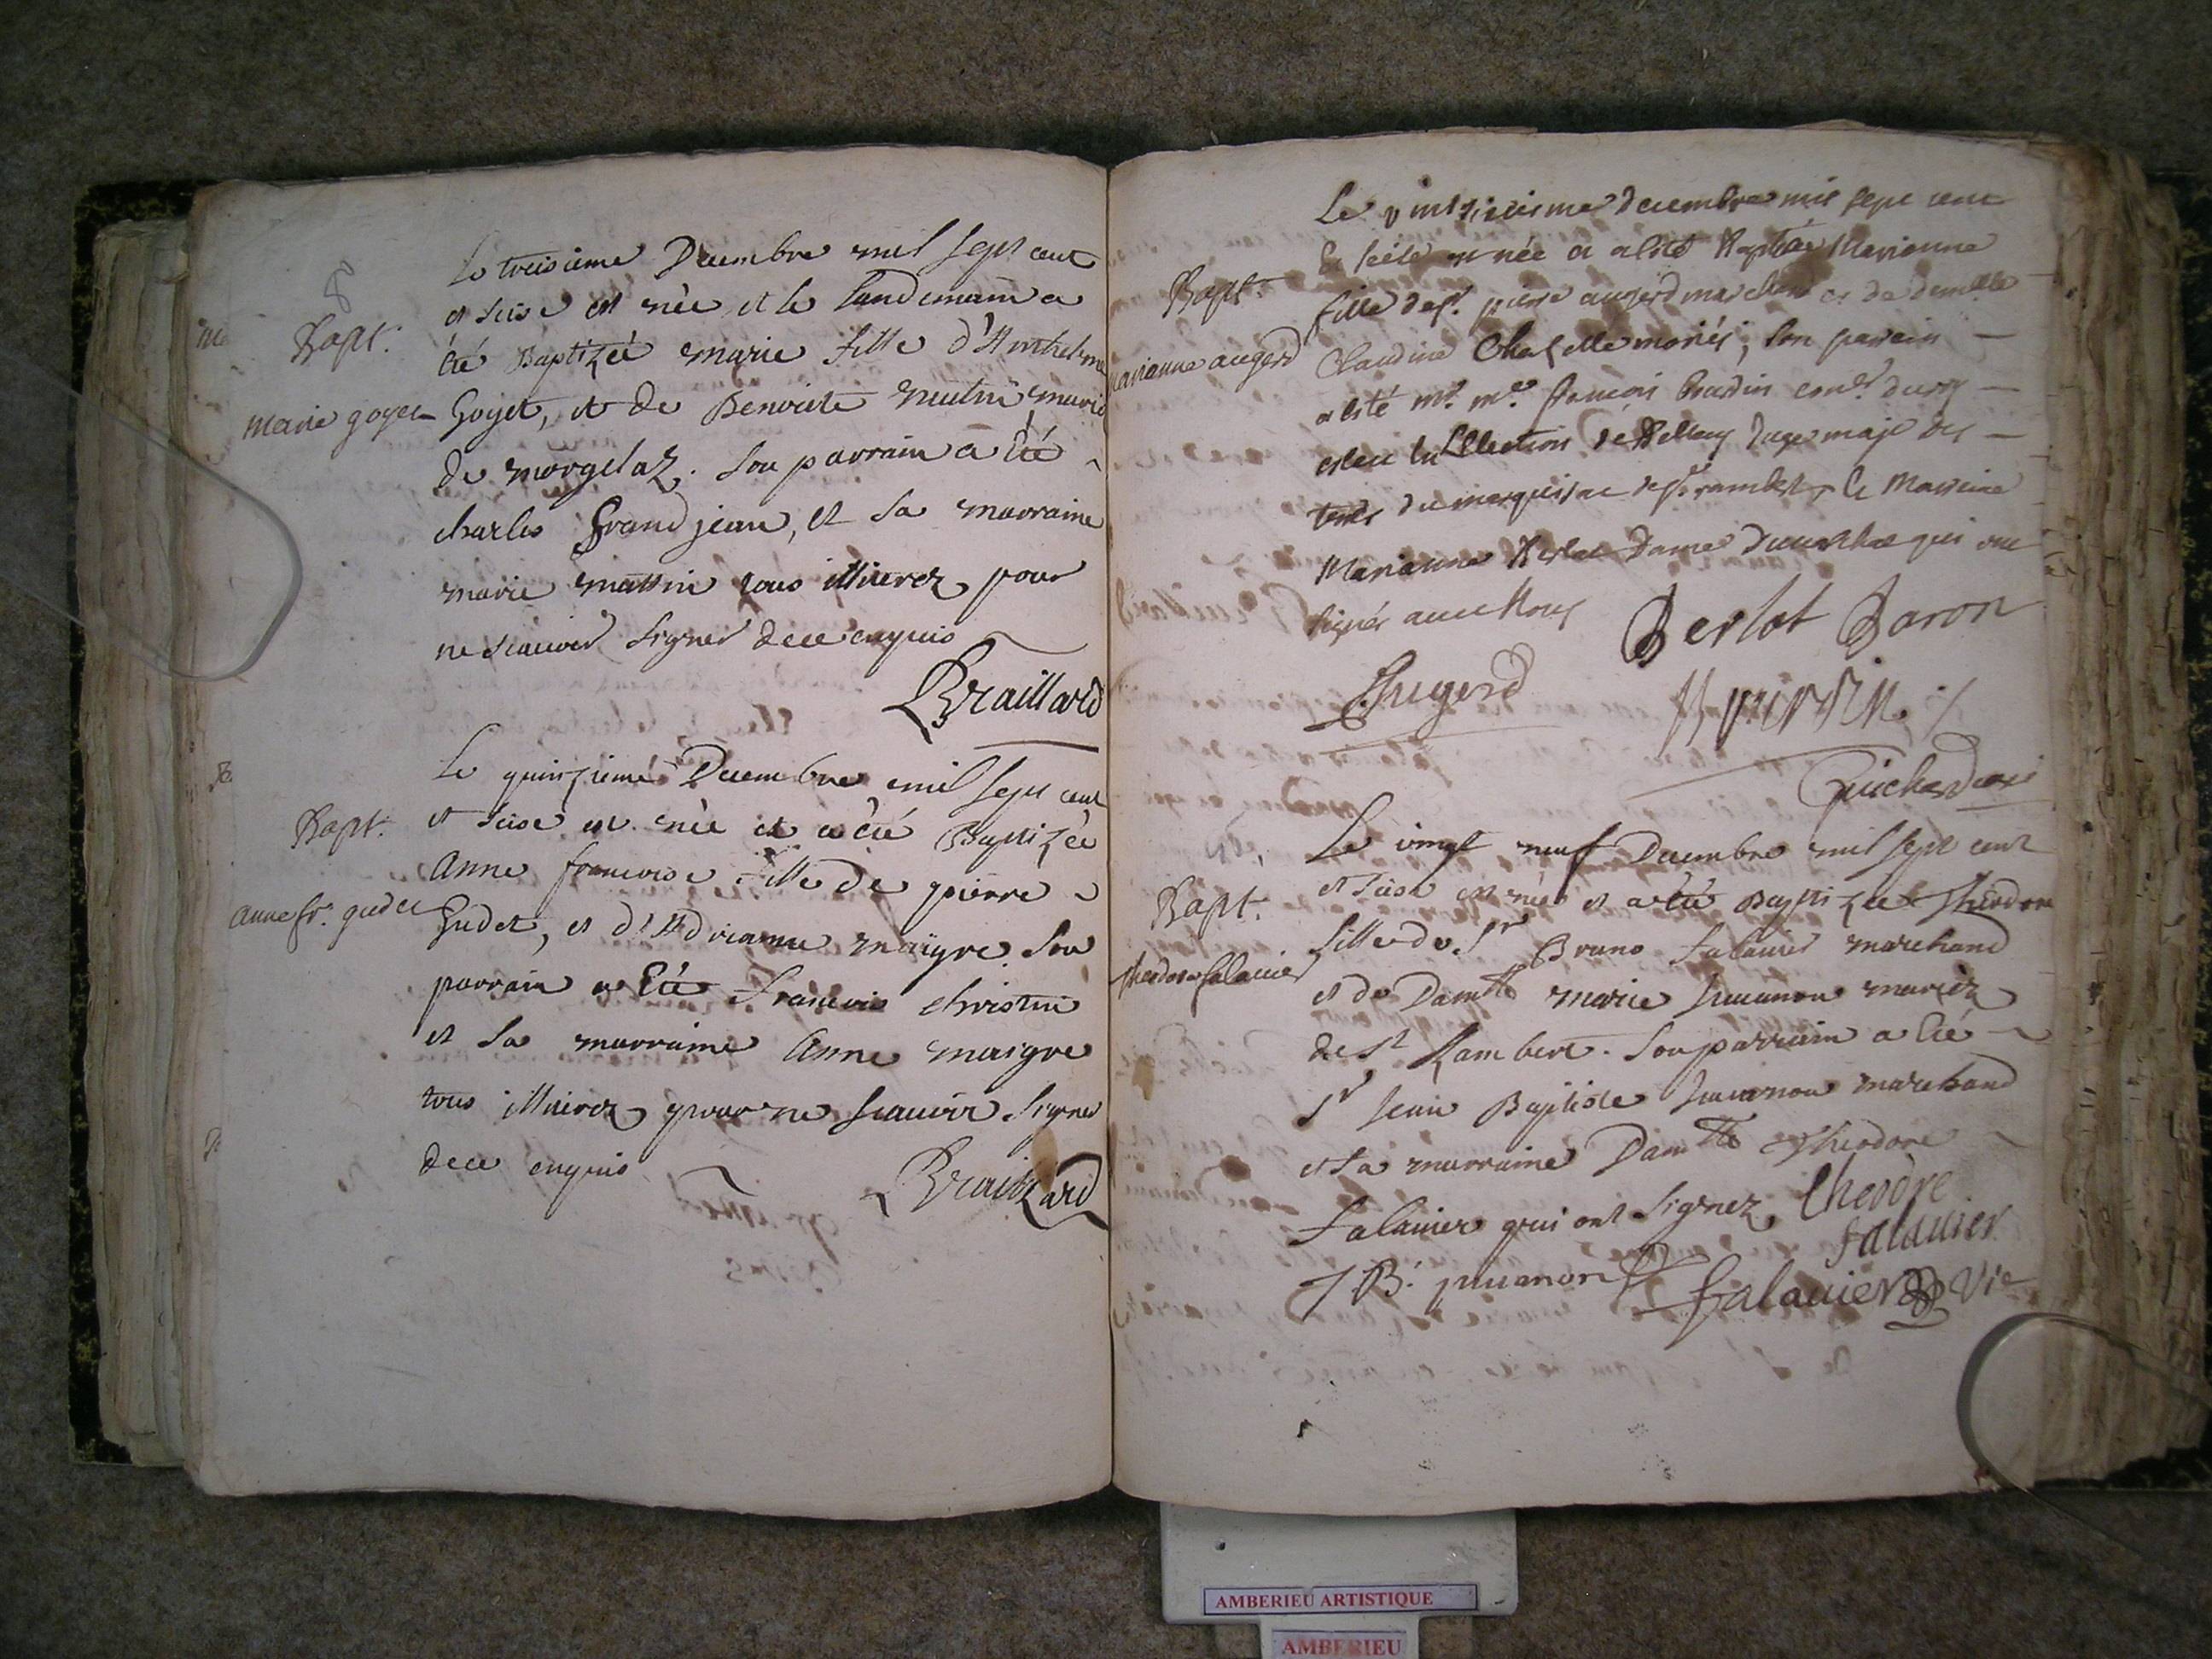 8
Bapt.
marie goyet
Le troisieme Decembre mil sept cent
et seise est née et le landemain a
été Baptizée marie fille d'Anthelme
Goyet, et de Benoiste mariés
de morgelaz. Son parrain a été
charles Grandjean, et sa marraine
marie tous illiterez pour
ne scauoir signer dece enquis
Braillard
Bapt.
anne fr. gudet
Le quinzieme Decembre mil sept cent
et seise est née et a été Baptizée
Anne francoise fille de pierre
Gudet, et d'Adrianne maigre. Son
parrain a été francois christin
et sa marraine Anne maigre
tous illiterez pour ne scauoir signer
dece enquis
Braillard
Bapt.
marianne augerd
Le decembre mil sept cent
et seise née a esté Baptisée Marianne
fille de sr. pierre augerd marchand et de demlle
Claudine mariés, son parrain
a esté Mr. me. francois
election de Belley Juge maje des
terres du marquisat de st. rambert, la Marreine
Marianne Dame qui ont
signés auec Nous
Berlot Baron
Augerd
Bapt.
theodore falauier
Le vingt neuf Decembre mil sept cent
et seise est née et a été Baptizée Theodore
fille de Sr Bruno falauier marchand
et de Damlle marie Juuanon mariez
de St Rambert. Son parrain a été
Sr Jean Baptiste Juuanon marchand
et sa marraine Damlle Theodore
falauier qui ont signez
theodre
falauier
J B. juuanon
falauier
AMBERIEU ARTISTIQUE
AMBERIEU